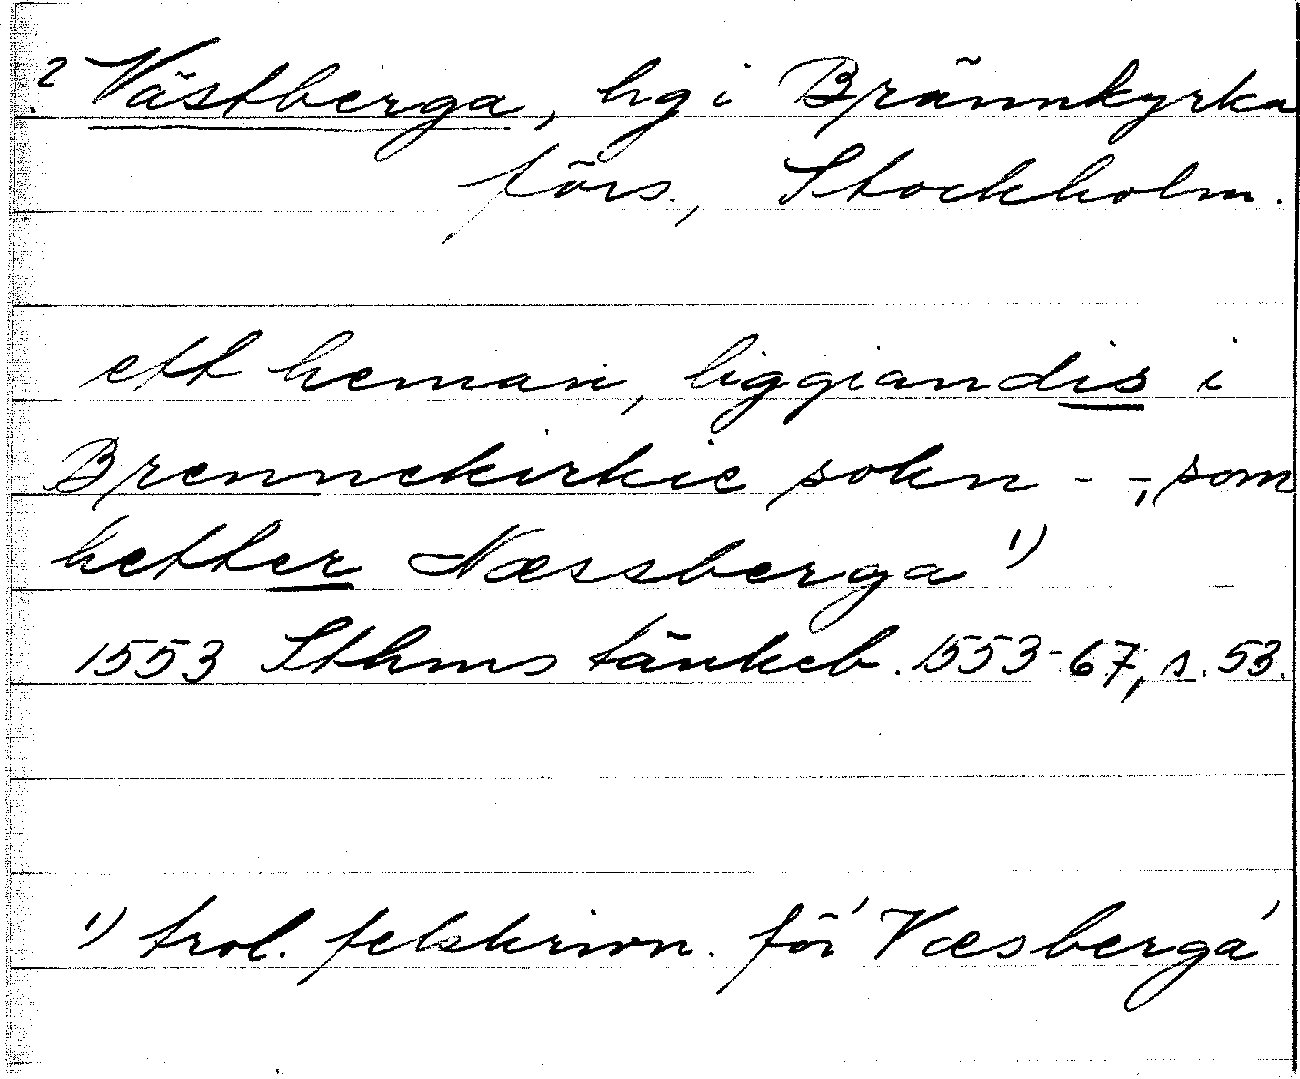 ? Västberga, hg i Brännkyrka
förs., Stockholm.
ett heman, liggiandis i
Brennekirkie sokn - -, som
hetter Næssberga ¹)
1553 Sthms tänkeb. 1553-67, s. 53.
¹) trol. felskrivn. för 'Væsberga'